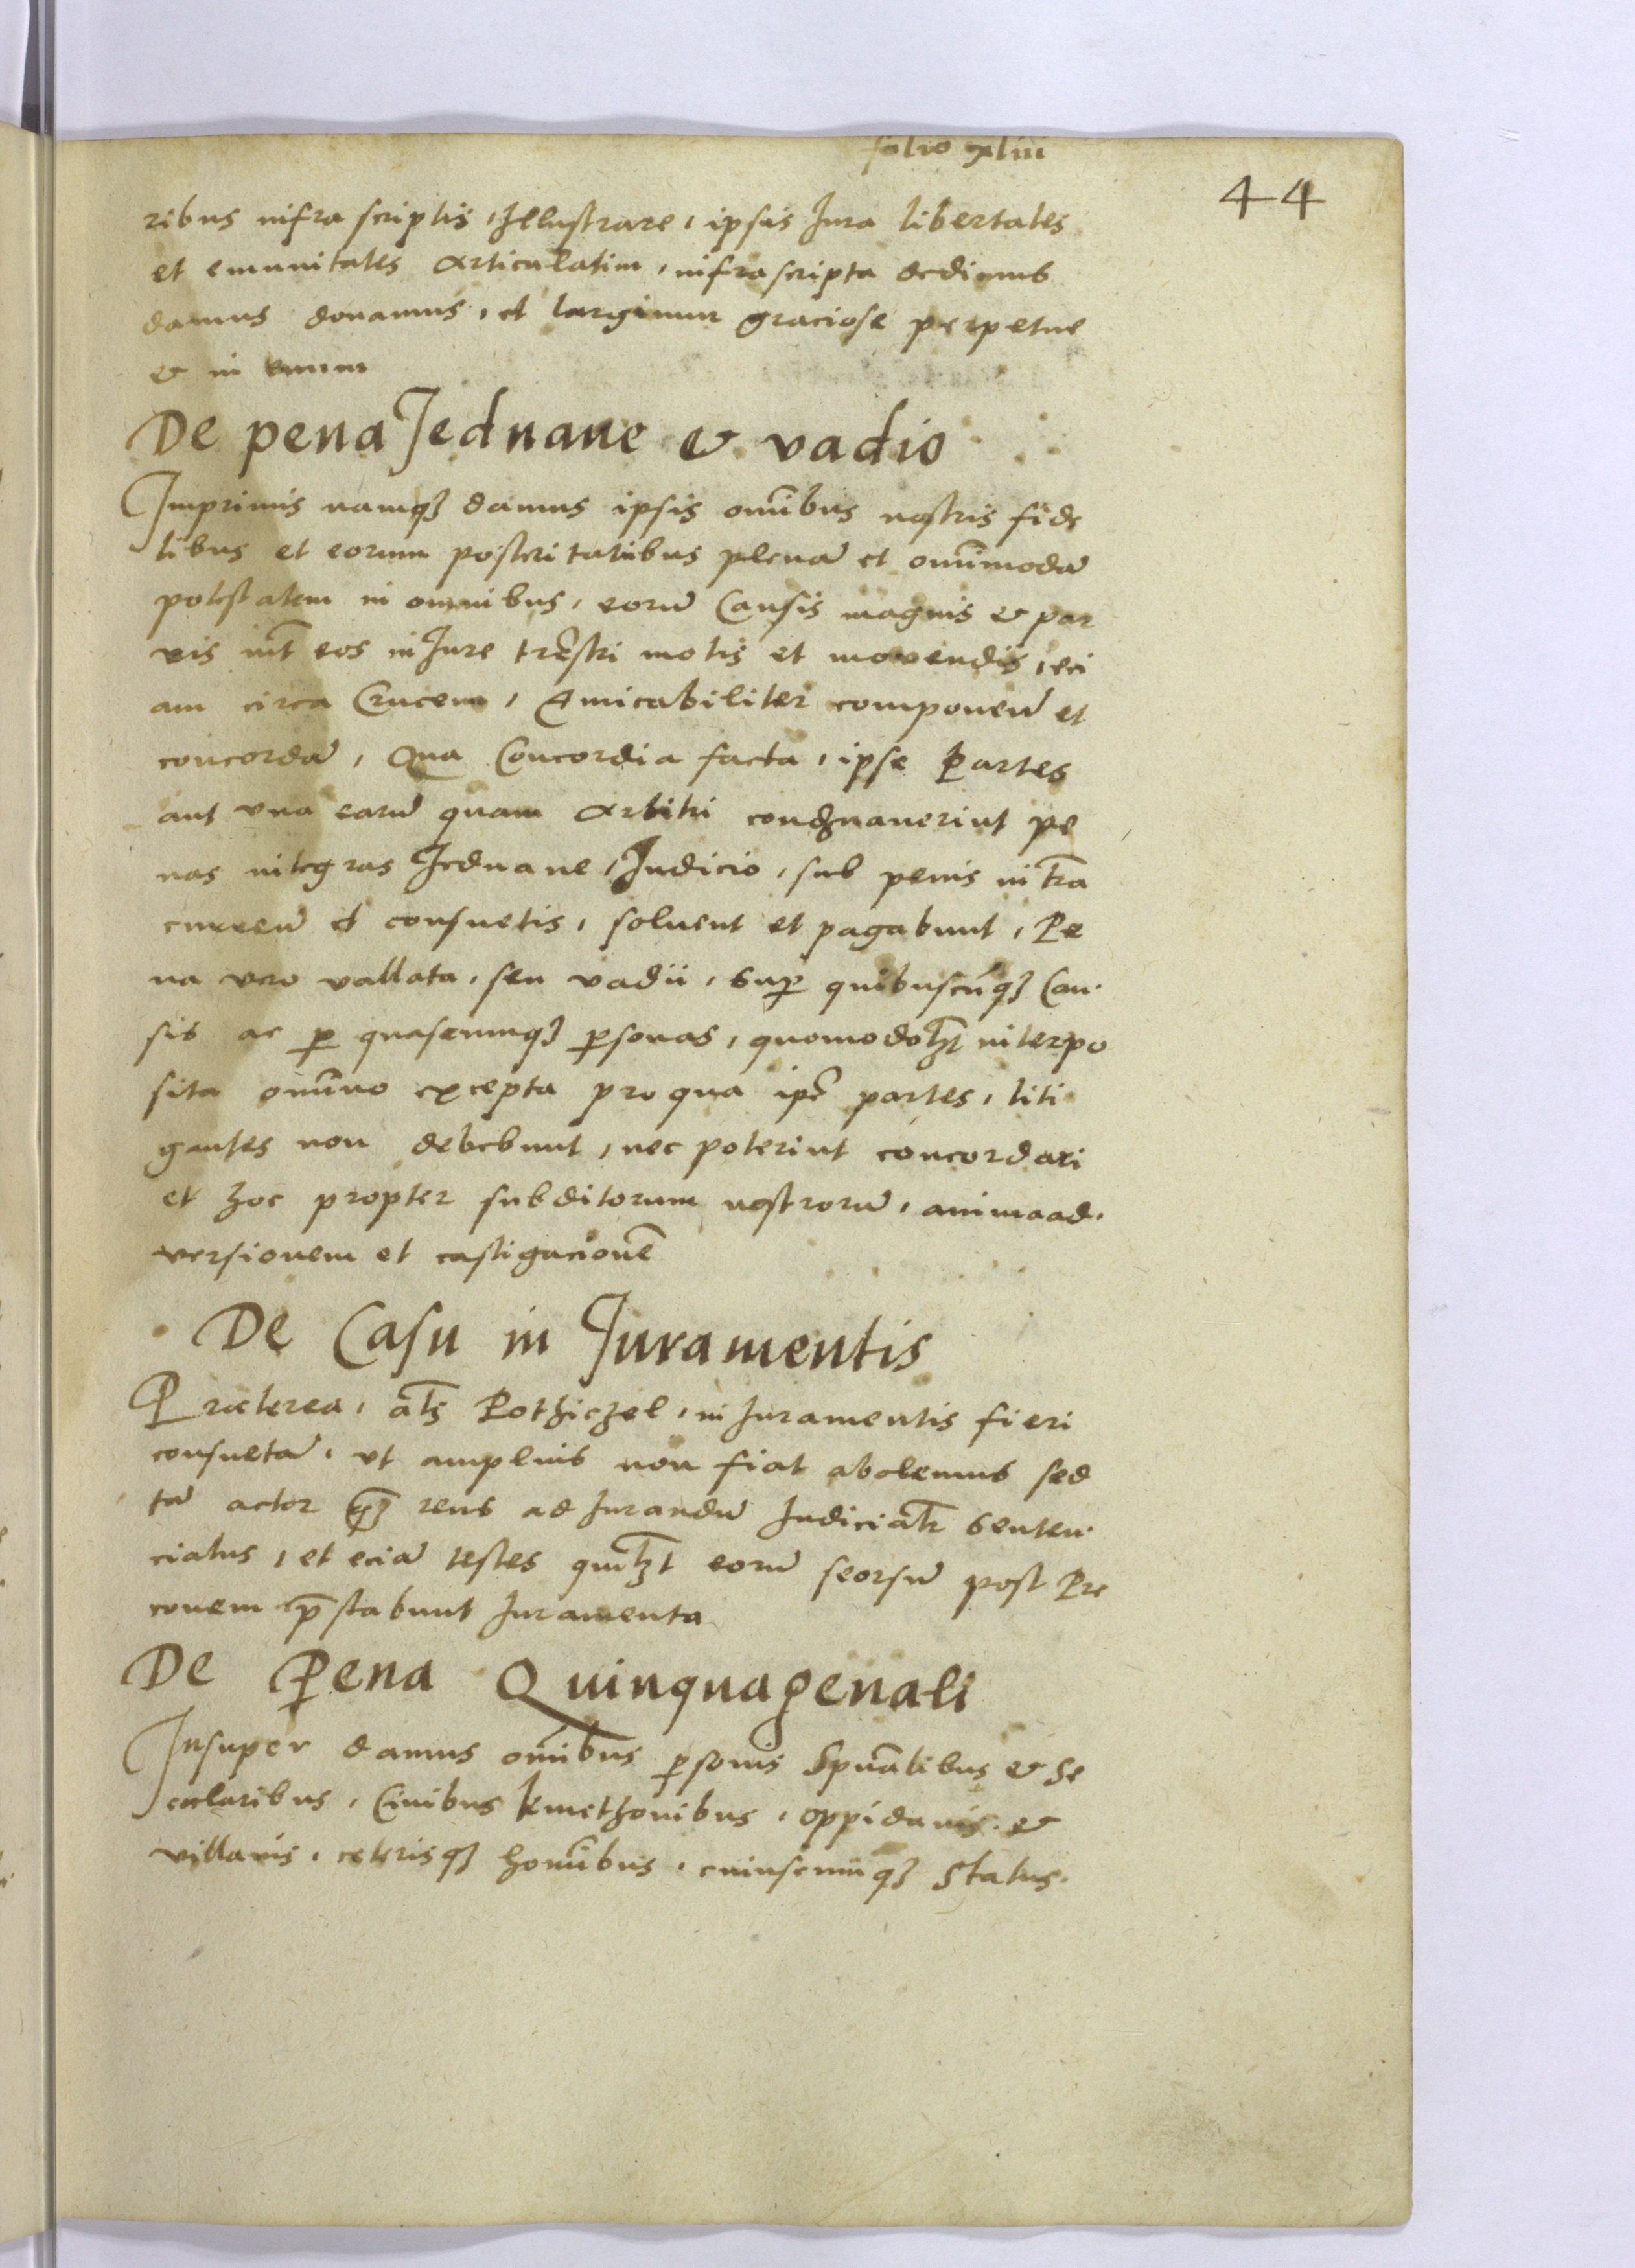 folio xliiii
44
ribus infra scriptis, Illustrare, ipsis Jura libertates
et emunitates articulatim, infrascripta dedimus
damus donamus, et largimur graciose perpetue
& in euum
De pena Jednane & vadio
Imprimis namqꝫ damus ipsis om̄ibus nostris fide
libus et eorum posteritatibus plenā et om̄imodā
potestatem in omnibus, eorū Causis magnis & par
vis int̄ eos in Jure tr̄estri motis et movendis, eci
am circa Crucem, Amicabiliter componenū et
concordā, Qua Concordia facta, ipse Partes
aut vna earū quam arbitri condēnanerint pe
nas integras Jednane, Judicio, sub penis in tr̄a
curreñ et consuetis, soluent et pagabunt, Pe
na vero vallata, seu vadii, sup̱ quibuscūqꝫ Cau
sis ac ꝑ quascumqꝫ ꝑsonas, quomodolꝫt interpo
sita om̄ino excepta pro qua ip̄e partes, liti
gantes non debebunt, nec poterint concordari
et hoc propter subditorum nostrorū, animaad
versionem et castigacionē
De Casu in Juramentis
Præterea, al̄s Pothiczel, in Juramentis fieri
consuetā, vt amplius non fiat abolemus sed
tā actor qꝫ reus ad Jurandū Judicialr̄ Senten
ciatus, et eciā testes quilꝫt eorū seorsū post Pre
conem p̄stabunt Juramenta
De Pena Quinquagenali
Insuper damus om̄ibus ꝑsonis Spūalibus & Se
cularibus, Ciuibus kmethonibus, oppidanis &
villanis, ceterisqꝫ hom̄ibus, cuiuscumqꝫ Status